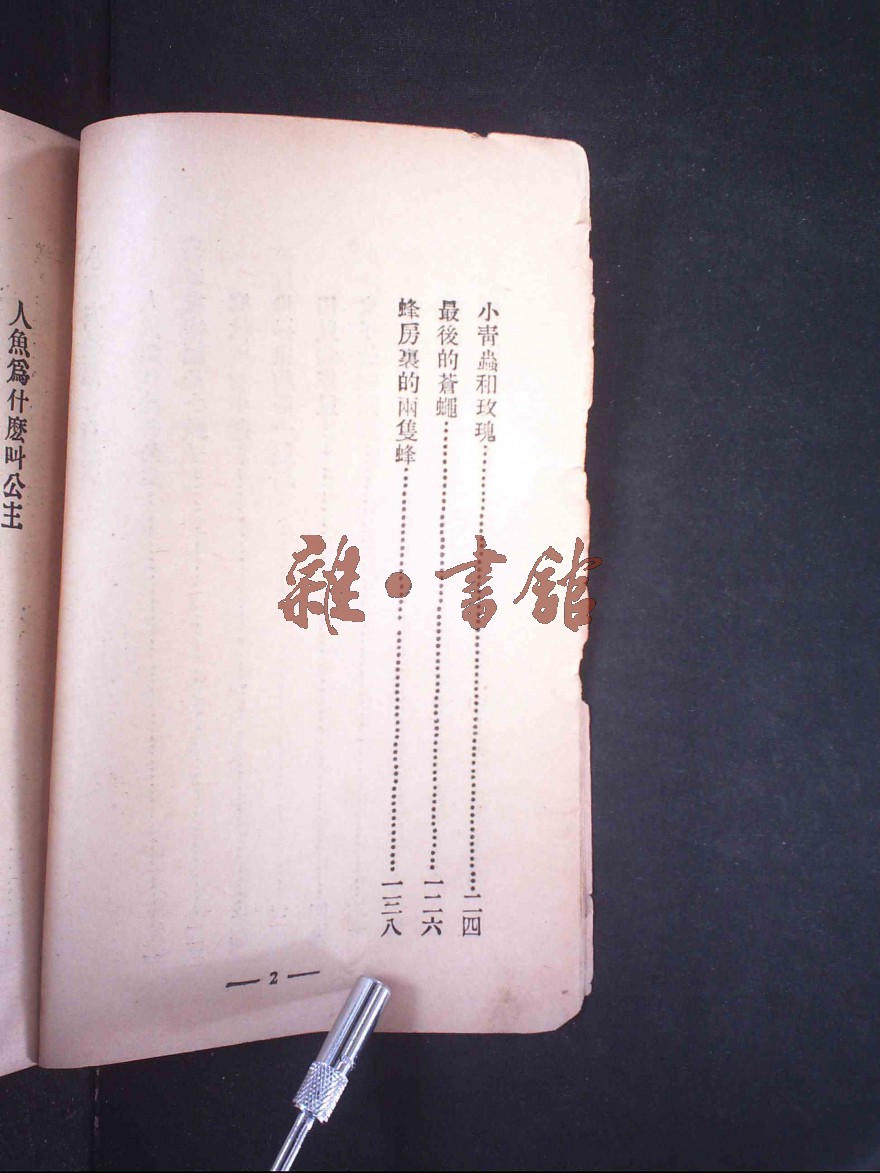 小靑蟲和玫瑰……一一四
最後的蒼蠅……一二六
蜂房裏的兩隻蜂……一三八
— 2 —
人魚爲什麽叫公主
雜·書館